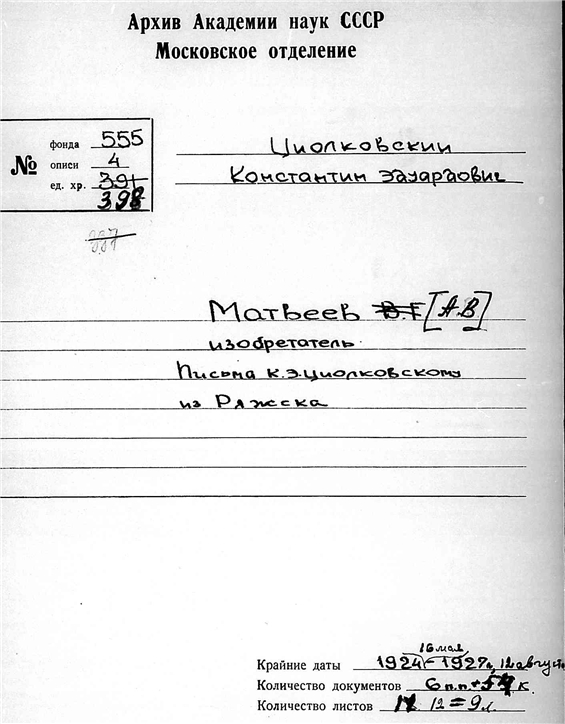 Архив Академии наук СССР
Московское отделение
№
фонда 555
описи 4
ед. хр. 391
398
337
Циолковский
Константин Эдуардович
Матвеев В.Г. [А.В]
изобретатель
Письма К.Э.Циолковскому
из Ряжска
16 мая
Крайние даты 1924-1927г, 12 август
Количество документов 6 п.п.+ к.
Количество листов 12=9л.